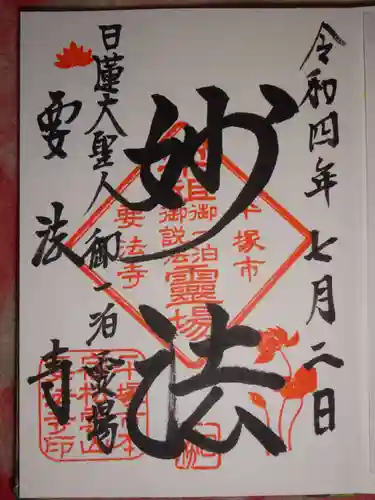 令和四年七月二日
妙法
日蓮大聖人御一泊霊場
要法寺
平塚市
宗祖御一泊御説法靈場
要法寺